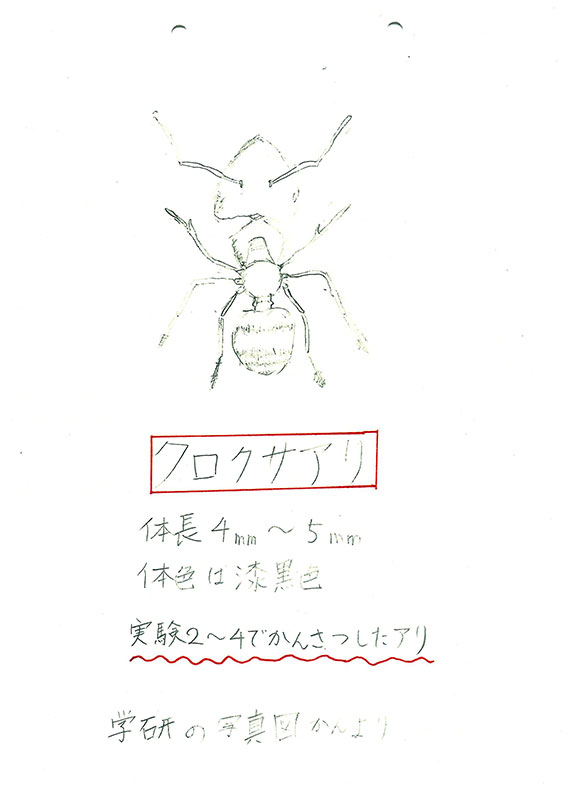 クロクサアリ
体長4mm〜5mm
体色は漆黒色
実験2〜4でかんさつしたアリ
学研の写真図かんより